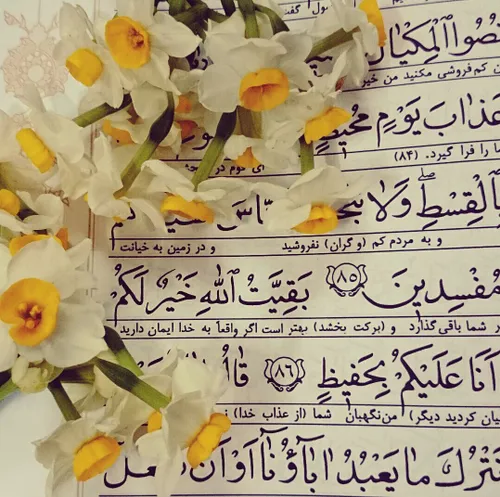 گفت
قُصُوا ٱلْمِكْيَا
کم فروشی مکنید من خیر
عَذَابَ يَوْمٍ مُحِيطٍ
را فرا گیرد. (۸۴) ای قوم در
بِٱلْقِسْطِ وَلَا
و به مردم کم (و گران) نفروشید و در زمین به خیانت
مُفْسِدِينَ ۸۵ بَقِيَّتُ ٱللَّهِ خَيْرٌ لَكُمْ
شما باقی گذارد و (برکت بخشد) بهتر است اگر واقعاً به خدا ایمان دارید
أَنَا عَلَيْكُمْ بِحَفِيظٍ ۸۶
کردید دیگر) من نگهبان شما (از عذاب خدا)
نَتْرُكَ مَا يَعْبُدُ ءَابَاؤُنَا أَوْ أَنْ